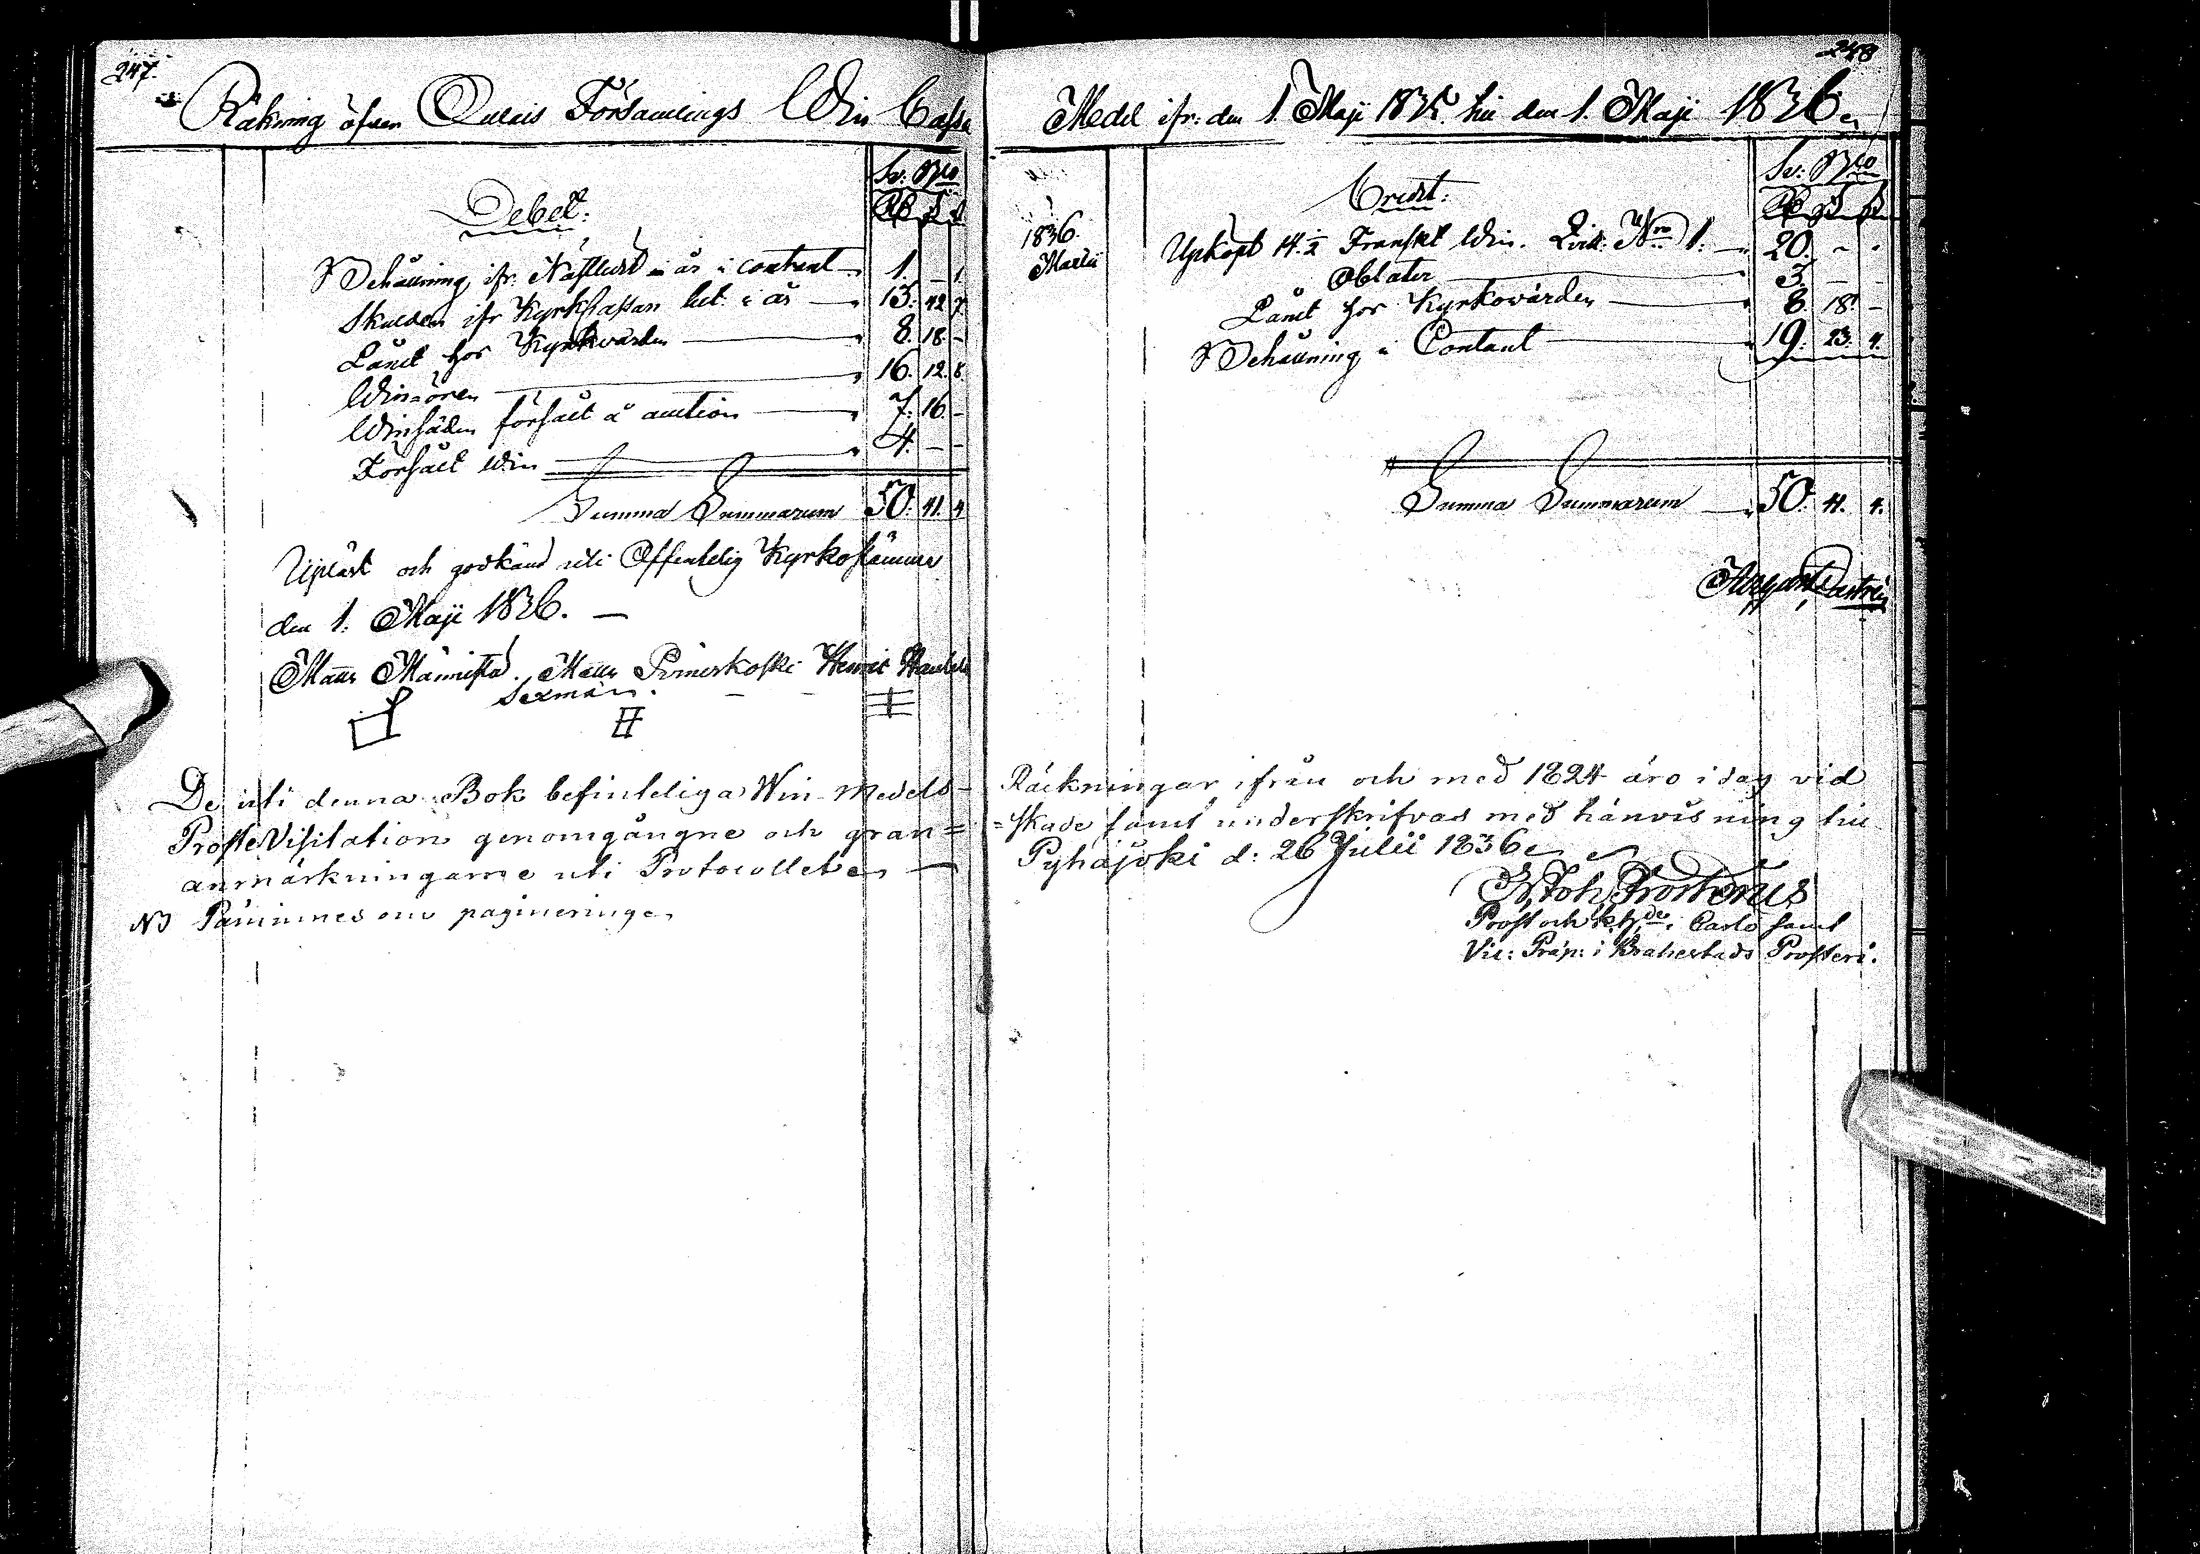 247.
Räkning öfver Oulais Församlings Win Cassa
Sv: Bco
Debet:
Rb ß d
Behållning ifr. Nästledit år i contant 1. – 1
Skulden ifr Kyrkcassan bet: i år 13. 42. 7.
Lånt hos Kyrkvärden 8. 18. –
Win-ören 16. 12. 8.
Winsäden försålt å auction 7. 16. –
Försålt Win 4. – –
Summa Summarum 50. 41. 4
Upläst och godkänd uti Offentelig Kyrkostämma
den 1. Maji 1836. –
Matts Mämistö. Matts Henric
Sexmän.
De uti denna Bok befinteliga Win-Medels-
Proste Visitation genomgångne och gran=
anmärkningarne uti Protocollet
NB Påminnes om pagineringe
248
Medel ifr: den 1. Maji 1835. till den 1. Maji 1836.
Sv: Bco
Credit:
Rb ß d
1836.
Martii
Upköpt 14. ½ Franskt Win. Qvitt: Nro 1. 20. – –
Oblater 3. – –
Lånt hos Kyrkovärden 8. 18. –
Behållning i Contant 19. 23. 4.
Summa Summarum 50. 41. 4.
Räkningar ifrån och med 1824 äro i dag vid
=skade samt underskrifvas med hänvisning till
Pyhäjoki d: 26 Julii 1836
Joh Frosterus
Prost och K.hde i Carlö samt
Vic: Präp: i Brahestads Prosteri.